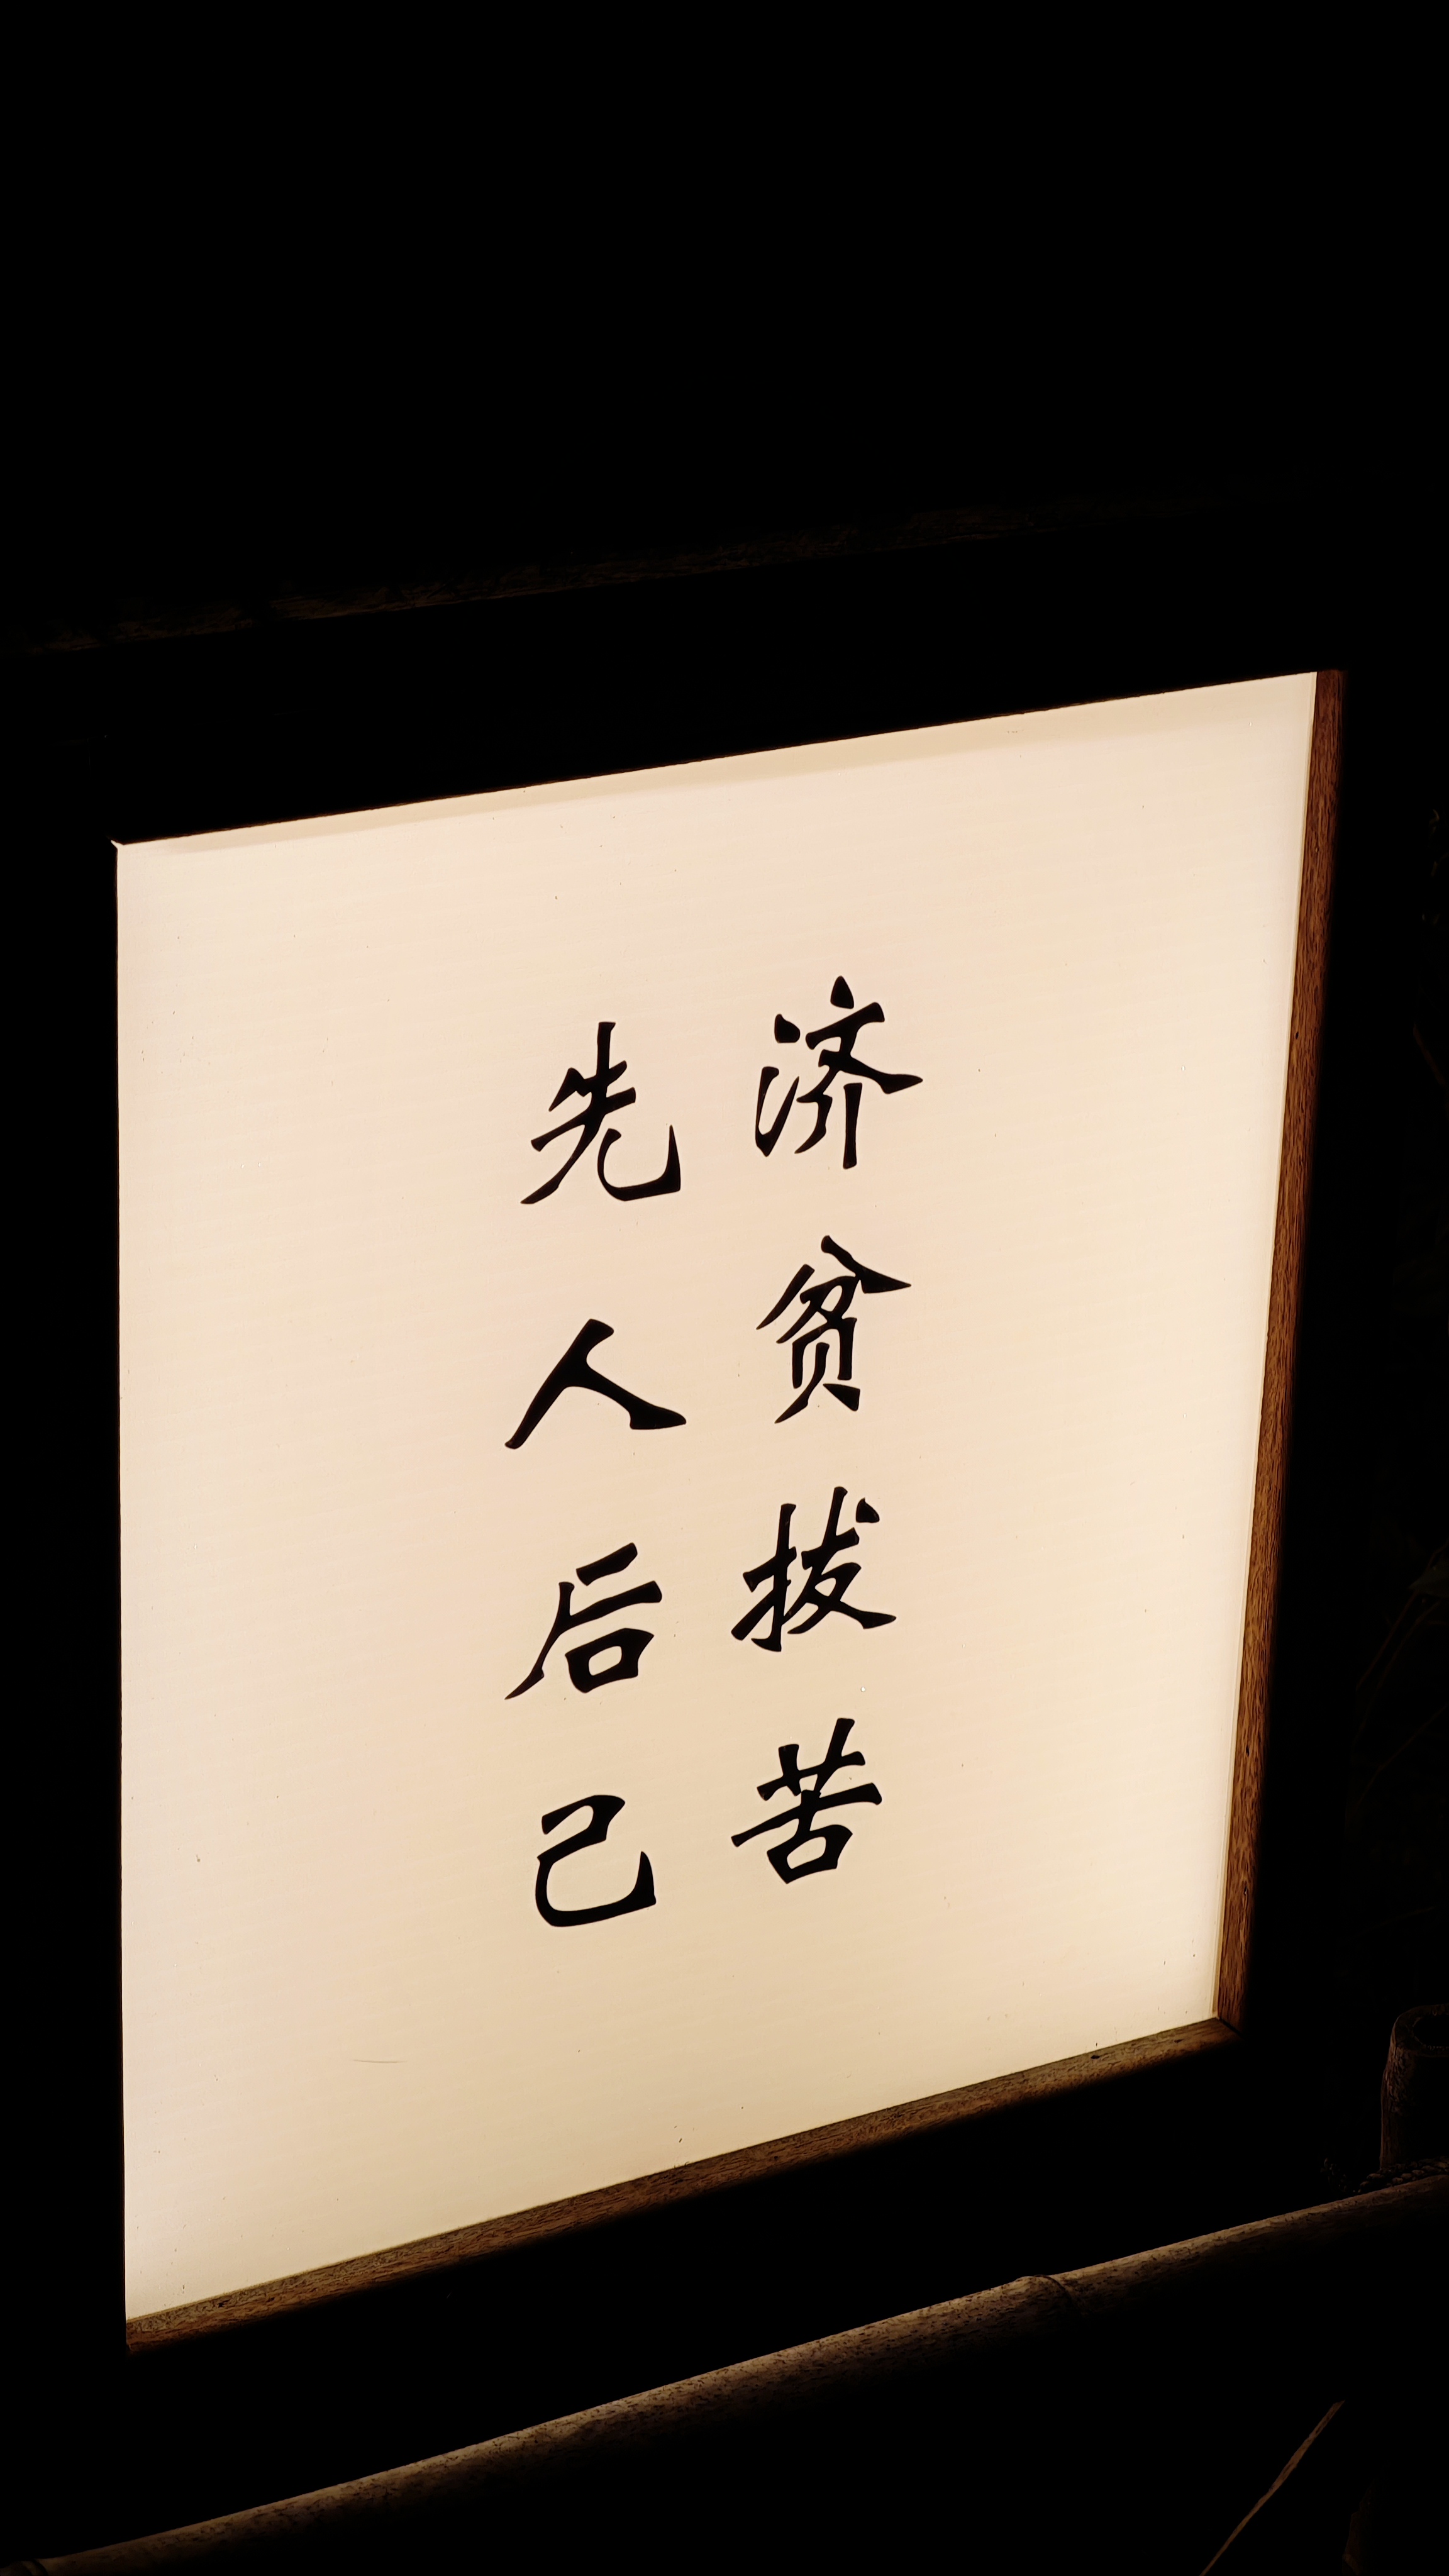 济贫拔苦
先人后己